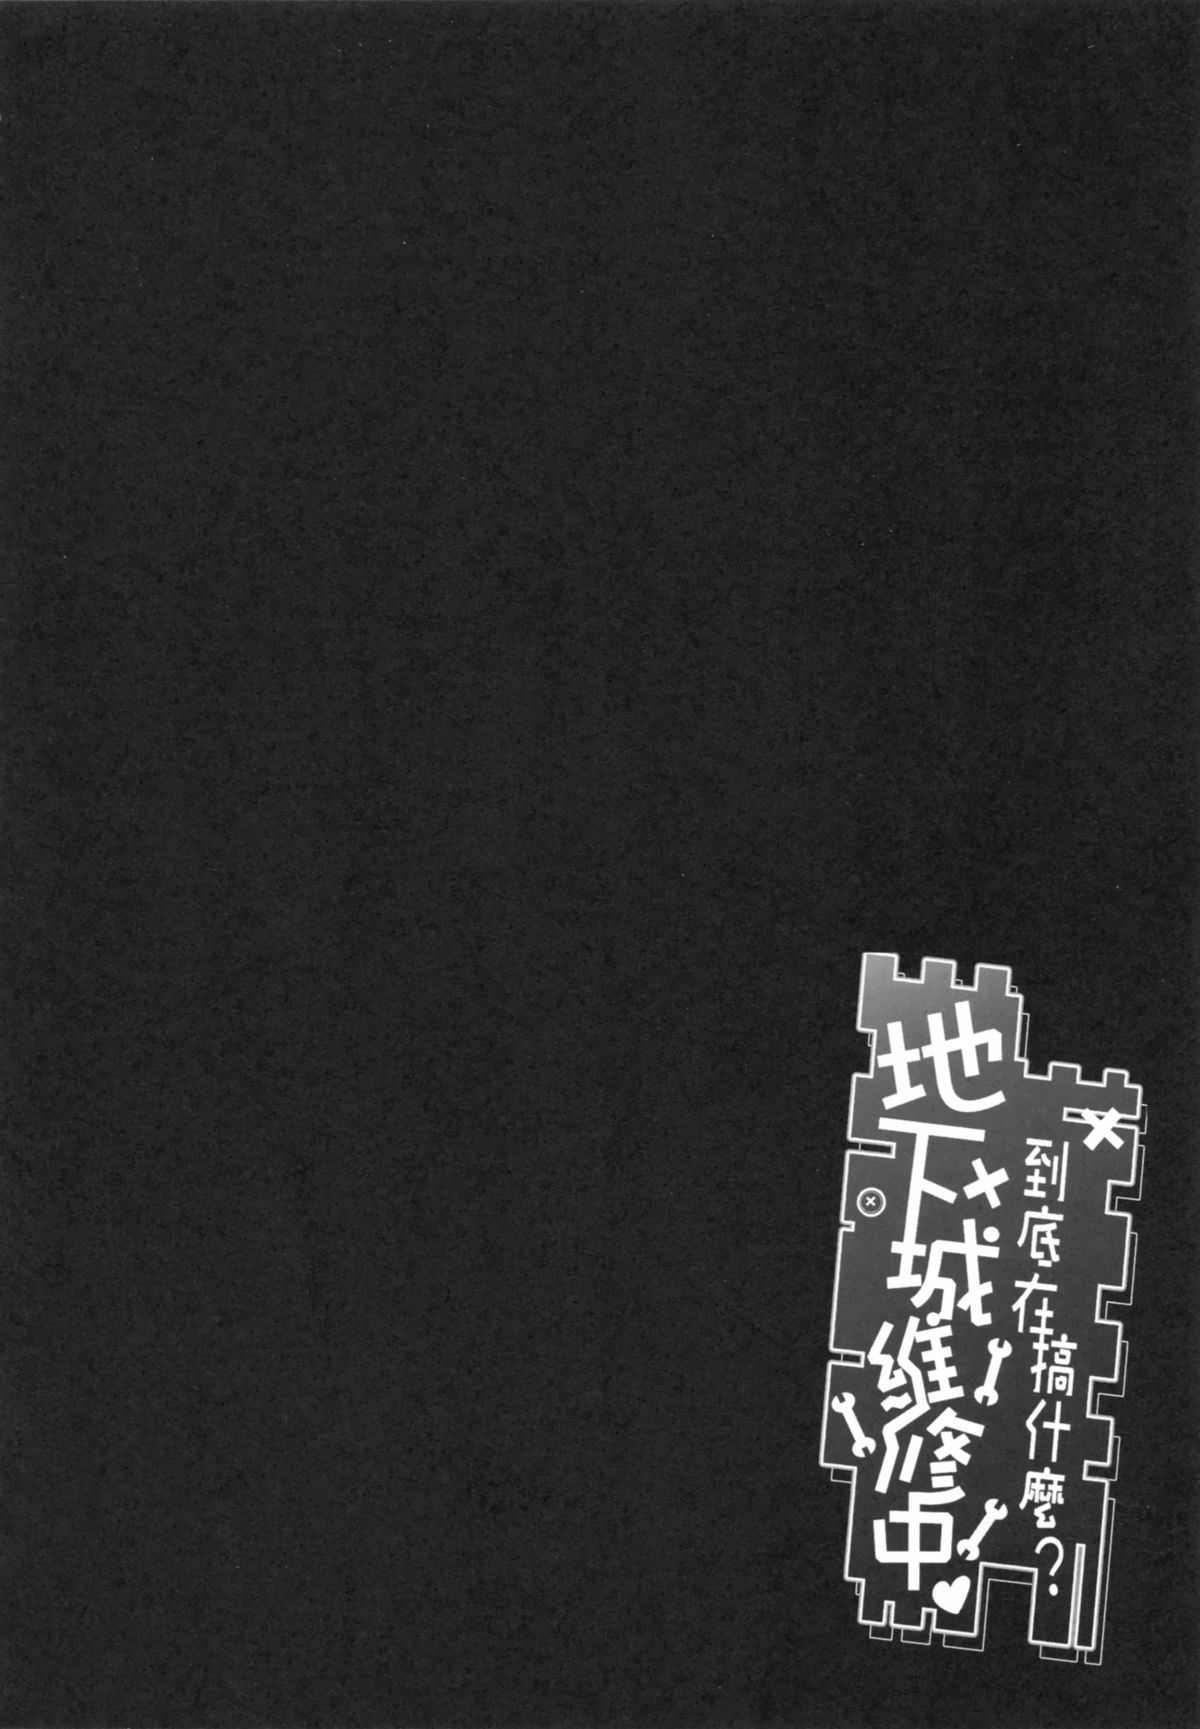 到底在搞什麼？
地下城維修中♥